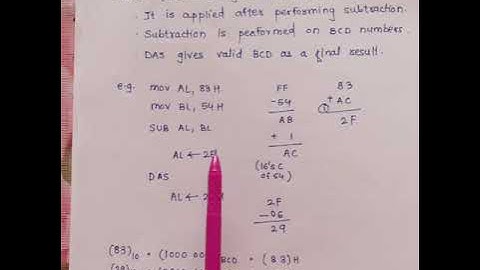 . It is applied after performing subtraction.
. Subtraction is performed on BCD numbers.
. DAS gives valid BCD as a final result.
e.g. mov AL, 83H
mov BL, 54H
SUB AL, BL
AL ← 2F
DAS
AL ← 2
FF
-54
AB
+ 1
AC
(16's C
of 54)
83
+ AC
1 2F
2F
-06
29
(83)10 = (1000 00 BCD = (83)H